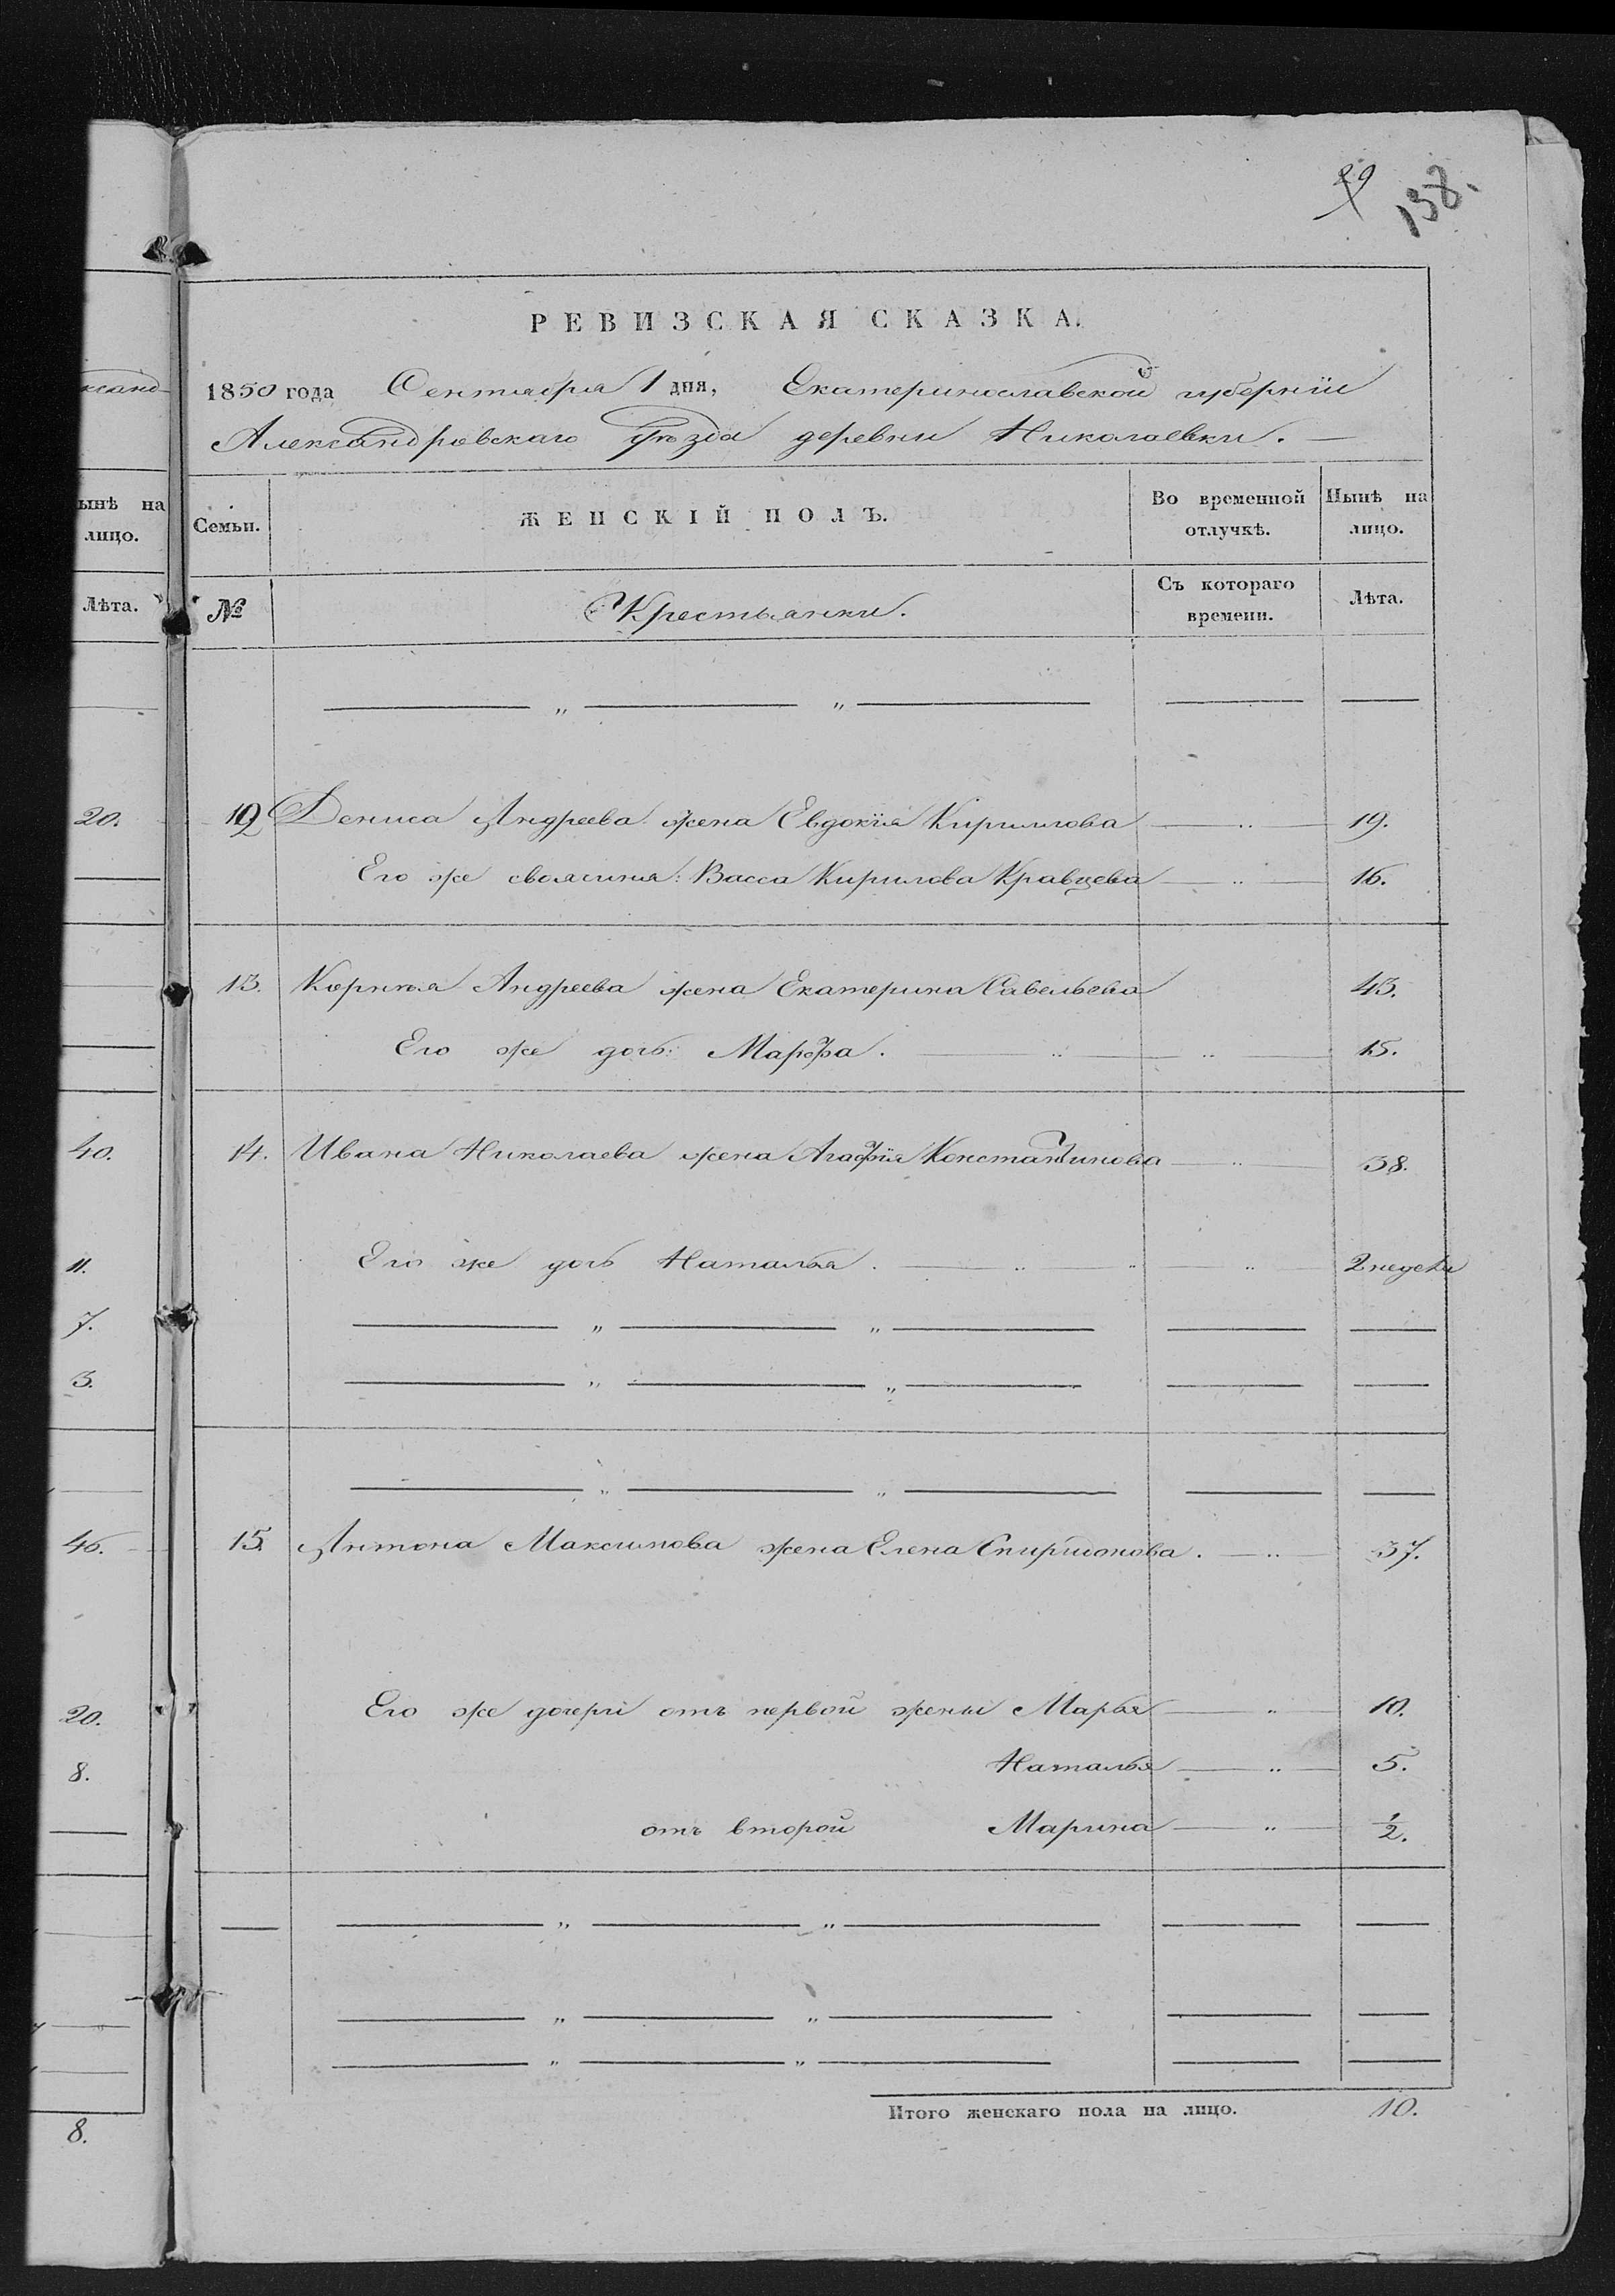 29
138.
ксанд-
ынѣ на
лицо.
Лѣта.
20.
40.
11.
7.
3.
46.
20.
8.
8.
РЕВИЗСКАЯ СКАЗКА.
1850 года Сентября 1 дня, Екатеринославской губерніи
Александровскаго уѣзда деревни Николаевки.
Семьи.
ЖЕНСКІЙ ПОЛЪ.
Во временной
отлучкѣ.
Нынѣ на
лицо.
№
Крестьянки.
Съ котораго
времени.
Лѣта.
12 Дениса Андреева жена Евдокія Кириллова 19.
Его же своячиня: Васса Кирилова Кравцева 16.
13. Корнѣя Андреева жена Екатерина Савельева 43.
Его же дочь: Марфа. 15.
14. Ивана Николаева жена Агафія Константинова 38.
Его же дочь Наталья. 2 недели
15. Антона Максимова жена Елена Спиридонова. 37.
Его же дочери отъ первой жены Марья 10.
Наталья 5.
отъ второй Марина 1/2.
Итого женскаго пола на лицо. 10.